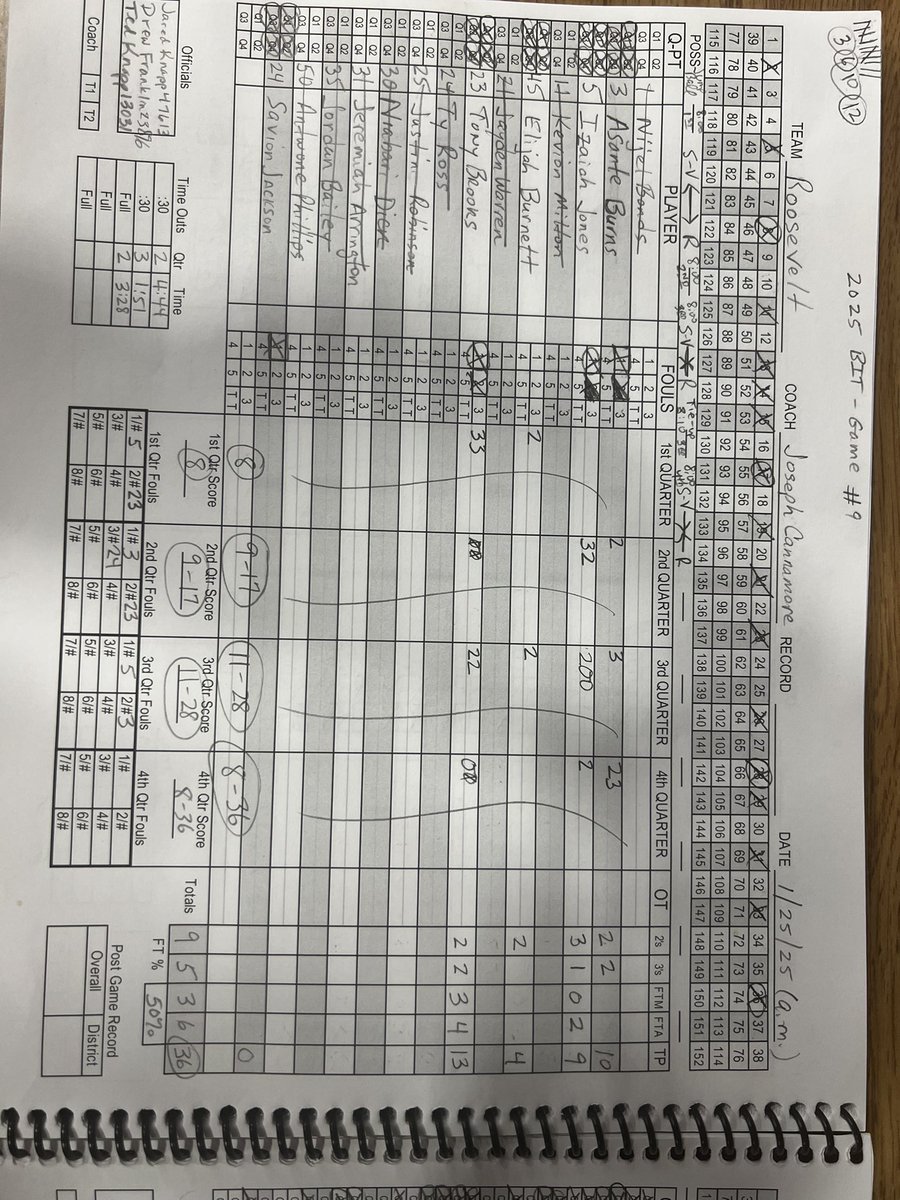 2025 BIT - Game #9
3 6 10 12
TEAM Roosevelt COACH Joseph Cannamore RECORD DATE 1/25/25 (a.m.)
1 2 3 4 5 6 7 8 9 10 11 12 13 14 15 16 17 18 19 20 21 22 23 24 25 26 27 28 29 30 31 32 33 34 35 36 37 38
39 40 41 42 43 44 45 46 47 48 49 50 51 52 53 54 55 56 57 58 59 60 61 62 63 64 65 66 67 68 69 70 71 72 73 74 75 76
77 78 79 80 81 82 83 84 85 86 87 88 89 90 91 92 93 94 95 96 97 98 99 100 101 102 103 104 105 106 107 108 109 110 111 112 113 114
115 116 117 118 119 120 121 122 123 124 125 126 127 128 129 130 131 132 133 134 135 136 137 138 139 140 141 142 143 144 145 146 147 148 149 150 151 152
POSS 8:00 1st S-V R 8:00 2nd 8:00 S-V R Tie-up 8:00 S-V R
Q-PT PLAYER FOULS 1st QUARTER 2nd QUARTER 3rd QUARTER 4th QUARTER OT 2s 3s FTM FTA TP
Q1 Q2 Q3 Q4 1 Nijel Bonds 1 2 3 4 5 T T
3 Asante Burns 2 3 23 2 2 10
5 Izaiah Jones 32 200 2 3 1 0 2 9
Q1 Q2 Q3 Q4 11 Kevion Mitton 1 2 3 4 5 T T
15 Elijah Burnett 1 2 3 4 5 T T 2 2 2 4
Q1 Q2 Q3 Q4 21 Jaiden Warren 1 2 3 4 5 T T
23 Tony Brooks 33 00 22 00 2 2 3 4 13
Q1 Q2 Q3 Q4 24 Ty Ross 1 2 3 4 5 T T
Q1 Q2 Q3 Q4 25 Justin Robinson 1 2 3 4 5 T T
Q1 Q2 Q3 Q4 30 Nyabari Dien 1 2 3 4 5 T T
Q1 Q2 Q3 Q4 31 Jeremiah Arrington 1 2 3 4 5 T T
Q1 Q2 Q3 Q4 35 Jordan Bailey 1 2 3 4 5 T T
Q1 Q2 Q3 Q4 50 Antwone Phillips 1 2 3 4 5 T T
24 Savion Jackson 2 3 4 5 T T
Q1 Q2 Q3 Q4 1 2 3 4 5 T T 8 9-17 11-28 8-36 0
Officials Time Outs Qtr Time 1st Qtr Score 8 2nd Qtr Score 9-17 3rd Qtr Score 11-28 4th Qtr Score 8-36 Totals 9 5 3 6 36
Jared Knapp 47613 :30 2 4:44 1st Qtr Fouls 2nd Qtr Fouls 3rd Qtr Fouls 4th Qtr Fouls FT % 50%
Drew Franklin 25896 :30 3 1:51 1/# 5 2/# 23 1/# 3 2/# 23 1/# 5 2/# 3 1/# 2/#
Ted Knapp 13031 Full 2 3:28 3/# 4/# 3/# 24 4/# 3/# 4/# 3/# 4/# Post Game Record
Coach T1 T2 Full 5/# 6/# 5/# 6/# 5/# 6/# 5/# 6/# Overall District
Full 7/# 8/# 7/# 8/# 7/# 8/# 7/# 8/#